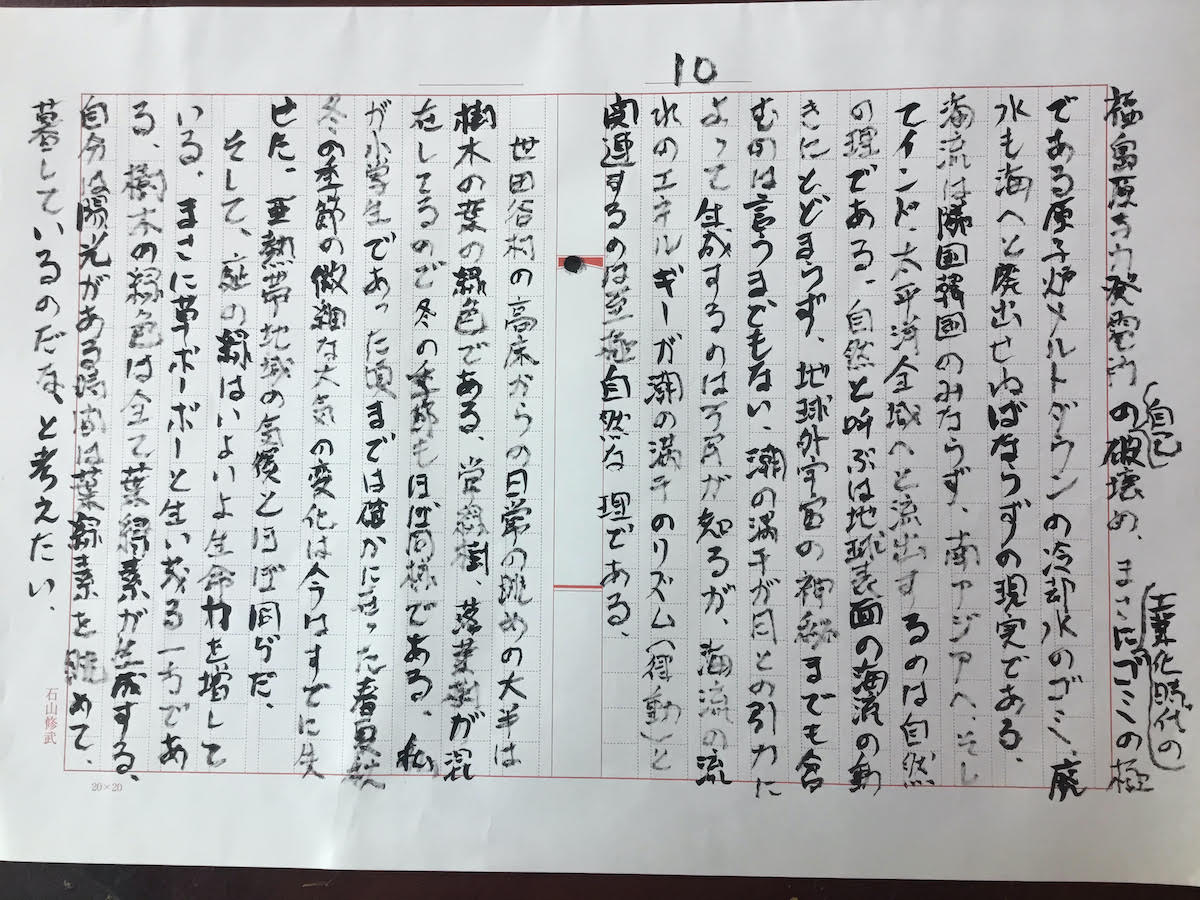 10
福島原子力発電所の自己破壊め、まさに工業化時代のゴミの極
である原子炉メルトダウンの冷却水のゴミ、廃
水も海へと廃出せねばならずの現実である、
海流は隣国韓国のみならず、南アジアへ、そし
てインド、太平洋全域へと流出するのは自然
の理である、自然と呼ぶは地球表面の海流の動
きにとどまらず、地球外宇宙の神秘までも含
むのは言うまでもない、潮の満干が月との引力に
よって生成するのは万民が知るが、海流の流
れのエネルギーが潮の満干のリズム(律動)と
関連するのは至極自然な理である、
世田谷村の高床からの日常の眺めの大半は
樹木の葉の緑色である、常緑樹、落葉樹が混
在してるので冬の季節もほぼ同様である、私
が小学生であった頃までは確かに在った春夏秋
冬の季節の微細な大気の変化は今はすでに失
せた、亜熱帯地域の気候とほぼ同じだ、
そして、庭の緑はいよいよ生命力を増して
いる、まさに草ボーボーと生い茂る一方であ
る、樹木の緑色は全て葉緑素が生成する、
自分は陽光がある場所は葉緑素を眺めて、
暮しているのだな、と考えたい、
石山修武
20×20